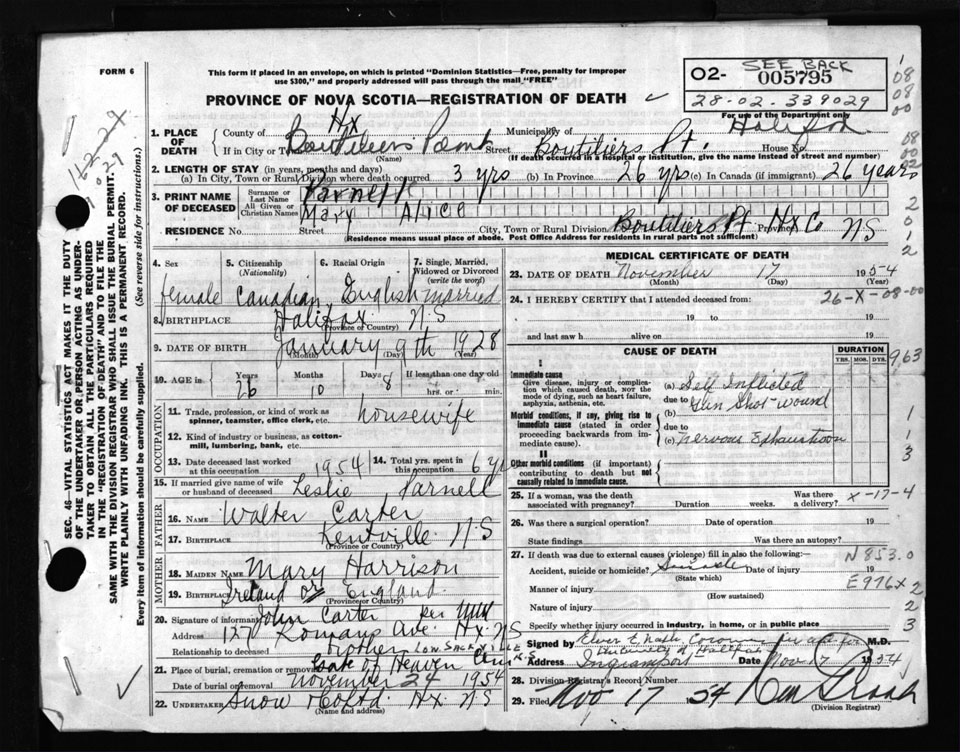 FORM 6
This form if placed in an envelope, on which is printed "Dominion Statistics—Free, penalty for improper
use $300," and properly addressed will pass through the mail "FREE"
PROVINCE OF NOVA SCOTIA—REGISTRATION OF DEATH
02-
SEE BACK
005795
28-02-339029
For use of the Department only
1. PLACE OF DEATH
County of Hx Municipality Halifax
If in City or Town Boutiliers Point Street Boutiliers Pt. House No.
(Name) (If death occurred in a hospital or institution, give the name instead of street and number)
2. LENGTH OF STAY (in years, months and days)
(a) In City, Town or Rural Division where death occurred 3 yrs (b) In Province 26 yrs (c) In Canada (if immigrant) 26 years
3. PRINT NAME OF DECEASED
Surname or Last Name Parnell
All Given or Christian Names Mary Alice
RESIDENCE No. Street City, Town or Rural Division Boutiliers Pt Hx Co Province NS
(Residence means usual place of abode. Post Office Address for residents in rural parts not sufficient)
4. Sex 5. Citizenship (Nationality) 6. Racial Origin 7. Single, Married, Widowed or Divorced (write the word)
female Canadian English married
8. BIRTHPLACE Halifax NS
(Province or Country)
9. DATE OF BIRTH January 9th 1928
(Month) (Day) (Year)
10. AGE in Years Months Days If less than one day old
26 10 8 hrs. or min.
OCCUPATION
11. Trade, profession, or kind of work as spinner, teamster, office clerk, etc. housewife
12. Kind of industry or business, as cotton-mill, lumbering, bank, etc.
13. Date deceased last worked at this occupation 1954 14. Total yrs. spent in this occupation 6 yrs
15. If married give name of wife or husband of deceased Leslie Parnell
FATHER
16. NAME Walter Carter
17. BIRTHPLACE Kentville NS
(Province or Country)
MOTHER
18. MAIDEN NAME Mary Harrison
19. BIRTHPLACE Ireland or England
(Province or Country)
20. Signature of informant John Carter per
Address 127 Romans Ave. Hx NS
Relationship to deceased Brother LOW. SACKVILLE N.S.
21. Place of burial, cremation or removal Gate of Heaven Cem
Date of burial or removal November 24 1954
22. UNDERTAKER Snow & Co Ltd Hx NS
(Name and address)
MEDICAL CERTIFICATE OF DEATH
23. DATE OF DEATH November 17 1954
(Month) (Day) (Year)
24. I HEREBY CERTIFY that I attended deceased from: 26-X-08-00
19 to 19
and last saw h alive on 19
CAUSE OF DEATH
DURATION
YRS. MOS. DYS.
963
I
Immediate cause
Give disease, injury or complication which caused death, NOT the mode of dying, such as heart failure, asphyxia, asthenia, etc.
(a) Self Inflicted
due to Gun Shot wound
Morbid conditions, if any, giving rise to immediate cause (stated in order proceeding backwards from immediate cause).
(b)
due to
(c) nervous Exhaustion
II
Other morbid conditions (if important) contributing to death but not causally related to immediate cause.
25. If a woman, was the death associated with pregnancy? Duration weeks. Was there a delivery? X-17-4
26. Was there a surgical operation? Date of operation 19
State findings Was there an autopsy?
27. If death was due to external causes (violence) fill in also the following:—
N853.0
Accident, suicide or homicide? Suicide Date of injury 19
(State which)
E976X
Manner of injury
(How sustained)
Nature of injury
Specify whether injury occurred in industry, in home, or in public place
Signed by Elver E. Nash Coroner in and for M.D.
Municipality of Halifax
Address Ingramport Date Nov 17 1954
28. Division Registrar's Record Number
29. Filed Nov 17 1954
(Division Registrar)
SEC. 46—VITAL STATISTICS ACT MAKES IT THE DUTY
OF THE UNDERTAKER OR PERSON ACTING AS UNDERTAKER TO OBTAIN ALL THE PARTICULARS REQUIRED
IN THE "REGISTRATION OF DEATH" AND TO FILE THE
SAME WITH THE DIVISION REGISTRAR WHO SHALL ISSUE THE BURIAL PERMIT.
WRITE PLAINLY WITH UNFADING INK. THIS IS A PERMANENT RECORD.
Every item of information should be carefully supplied. (See reverse side for instructions.)